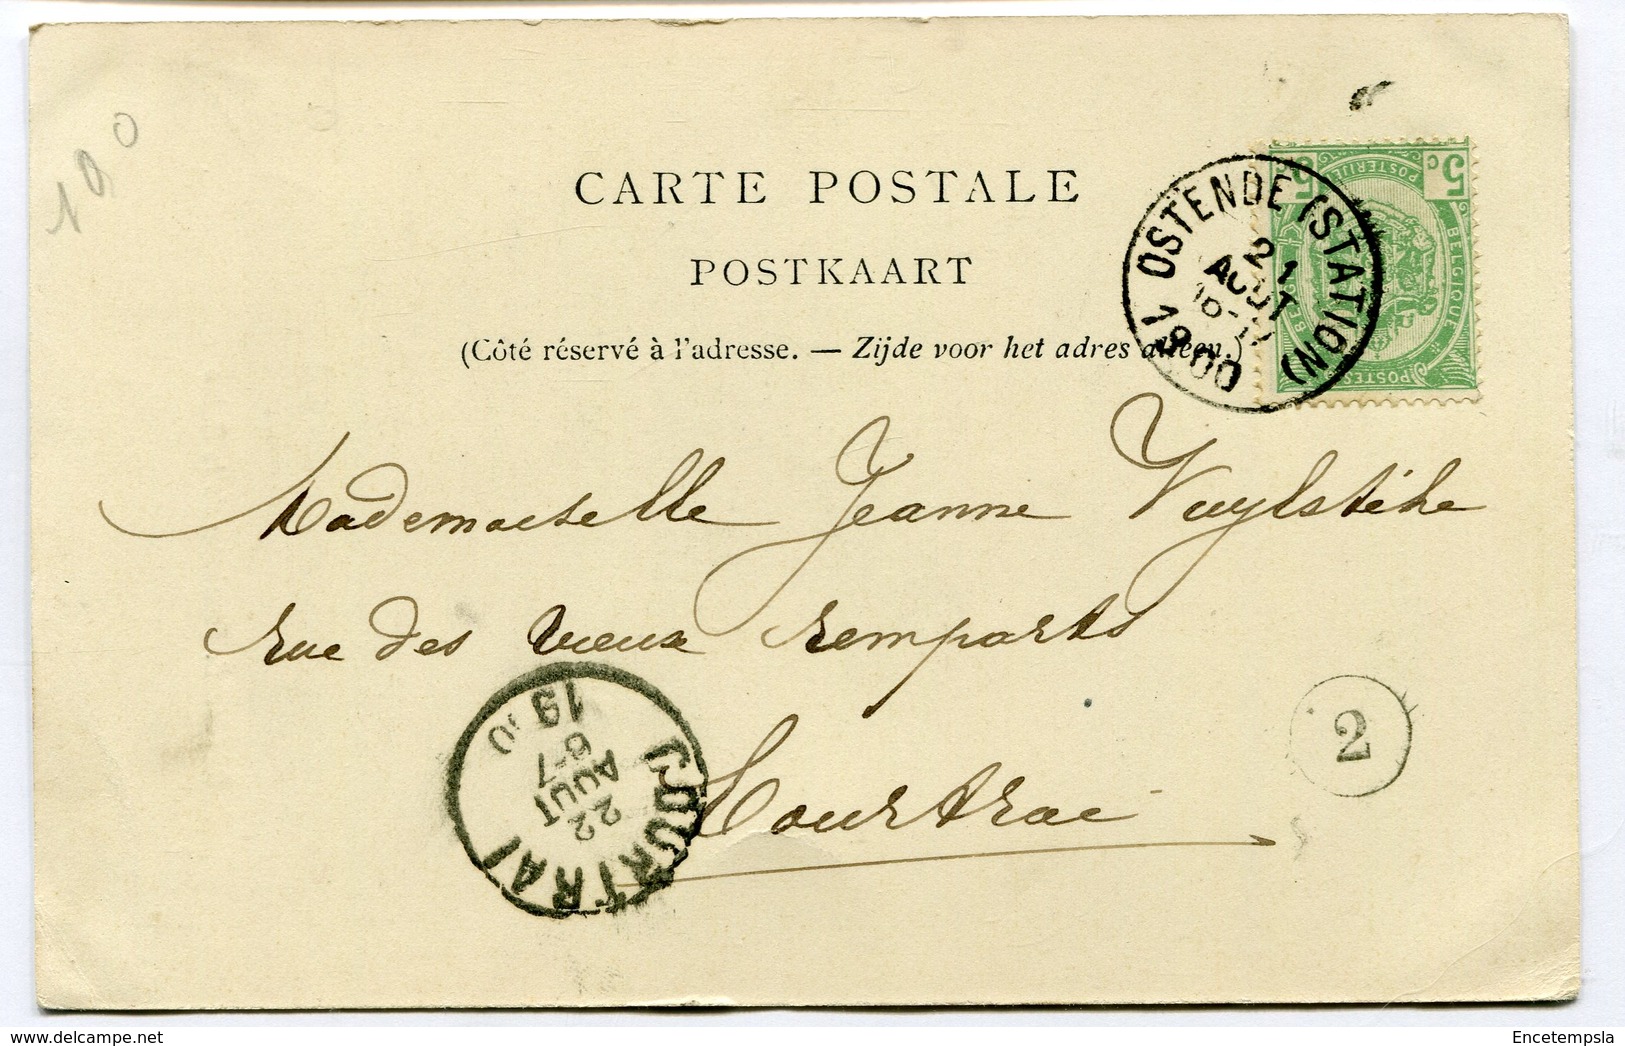 CARTE POSTALE
POSTKAART
(Côté réservé à l'adresse. — Zijde voor het adres alleen.)
OSTENDE (STATION)
21
AOUT
1900
5c 5
POSTERIJEN
BELGIQUE
BELGIE
POSTES
Mademoiselle Jeanne Vuylstéke
rue des vieux remparts
Courtrai
COURTRAI
22
AOUT
6-7
19
2
Encetempsla